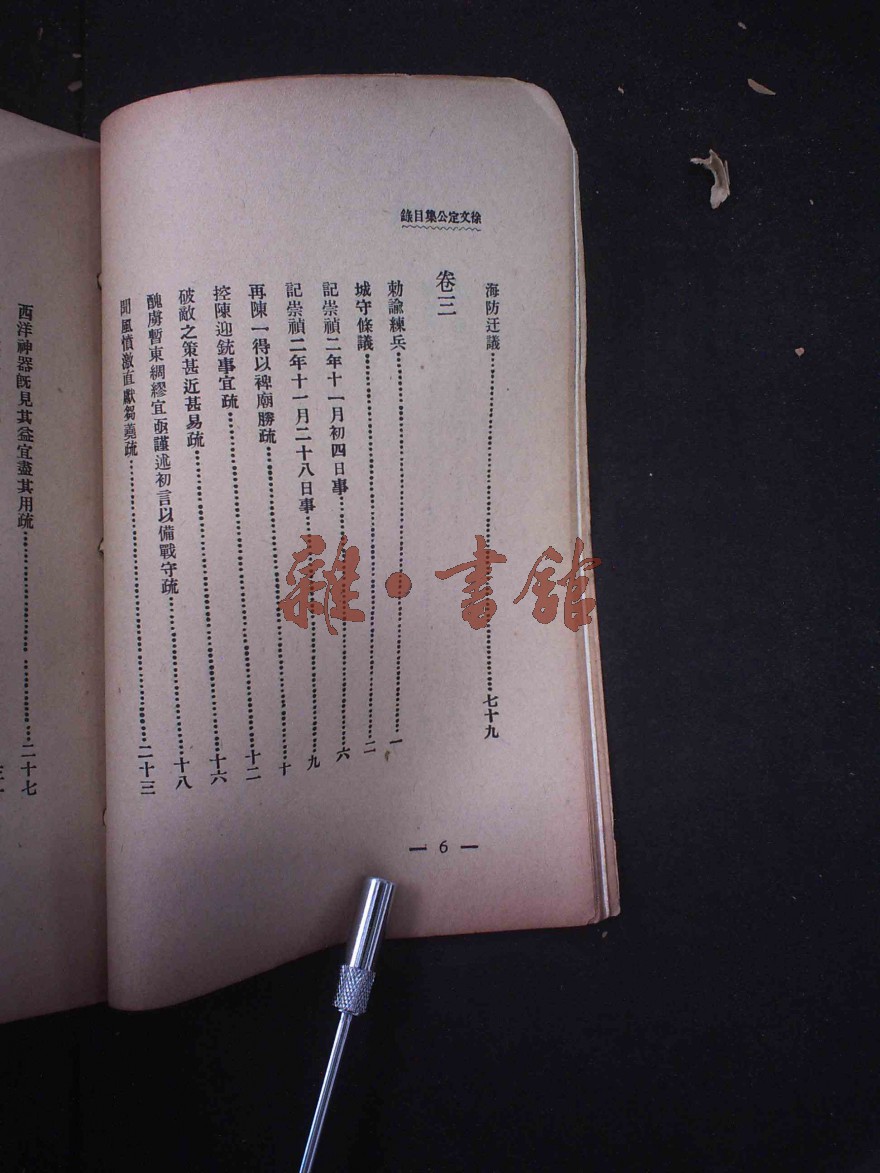 徐文定公集目錄
海防迂議……七十九
卷三
勅諭練兵……一
城守條議……二
記崇禎二年十一月初四日事……六
記崇禎二年十一月二十八日事……九
再陳一得以裨廟勝疏……十
控陳迎銃事宜疏……十二
破敵之策甚近甚易疏……十六
醜虜暫東綢繆宜亟謹述初言以備戰守疏……十八
聞風憤激直獻芻蕘疏……二十三
— 6 —
西洋神器旣見其益宜盡其用疏……二十七
雜·書館